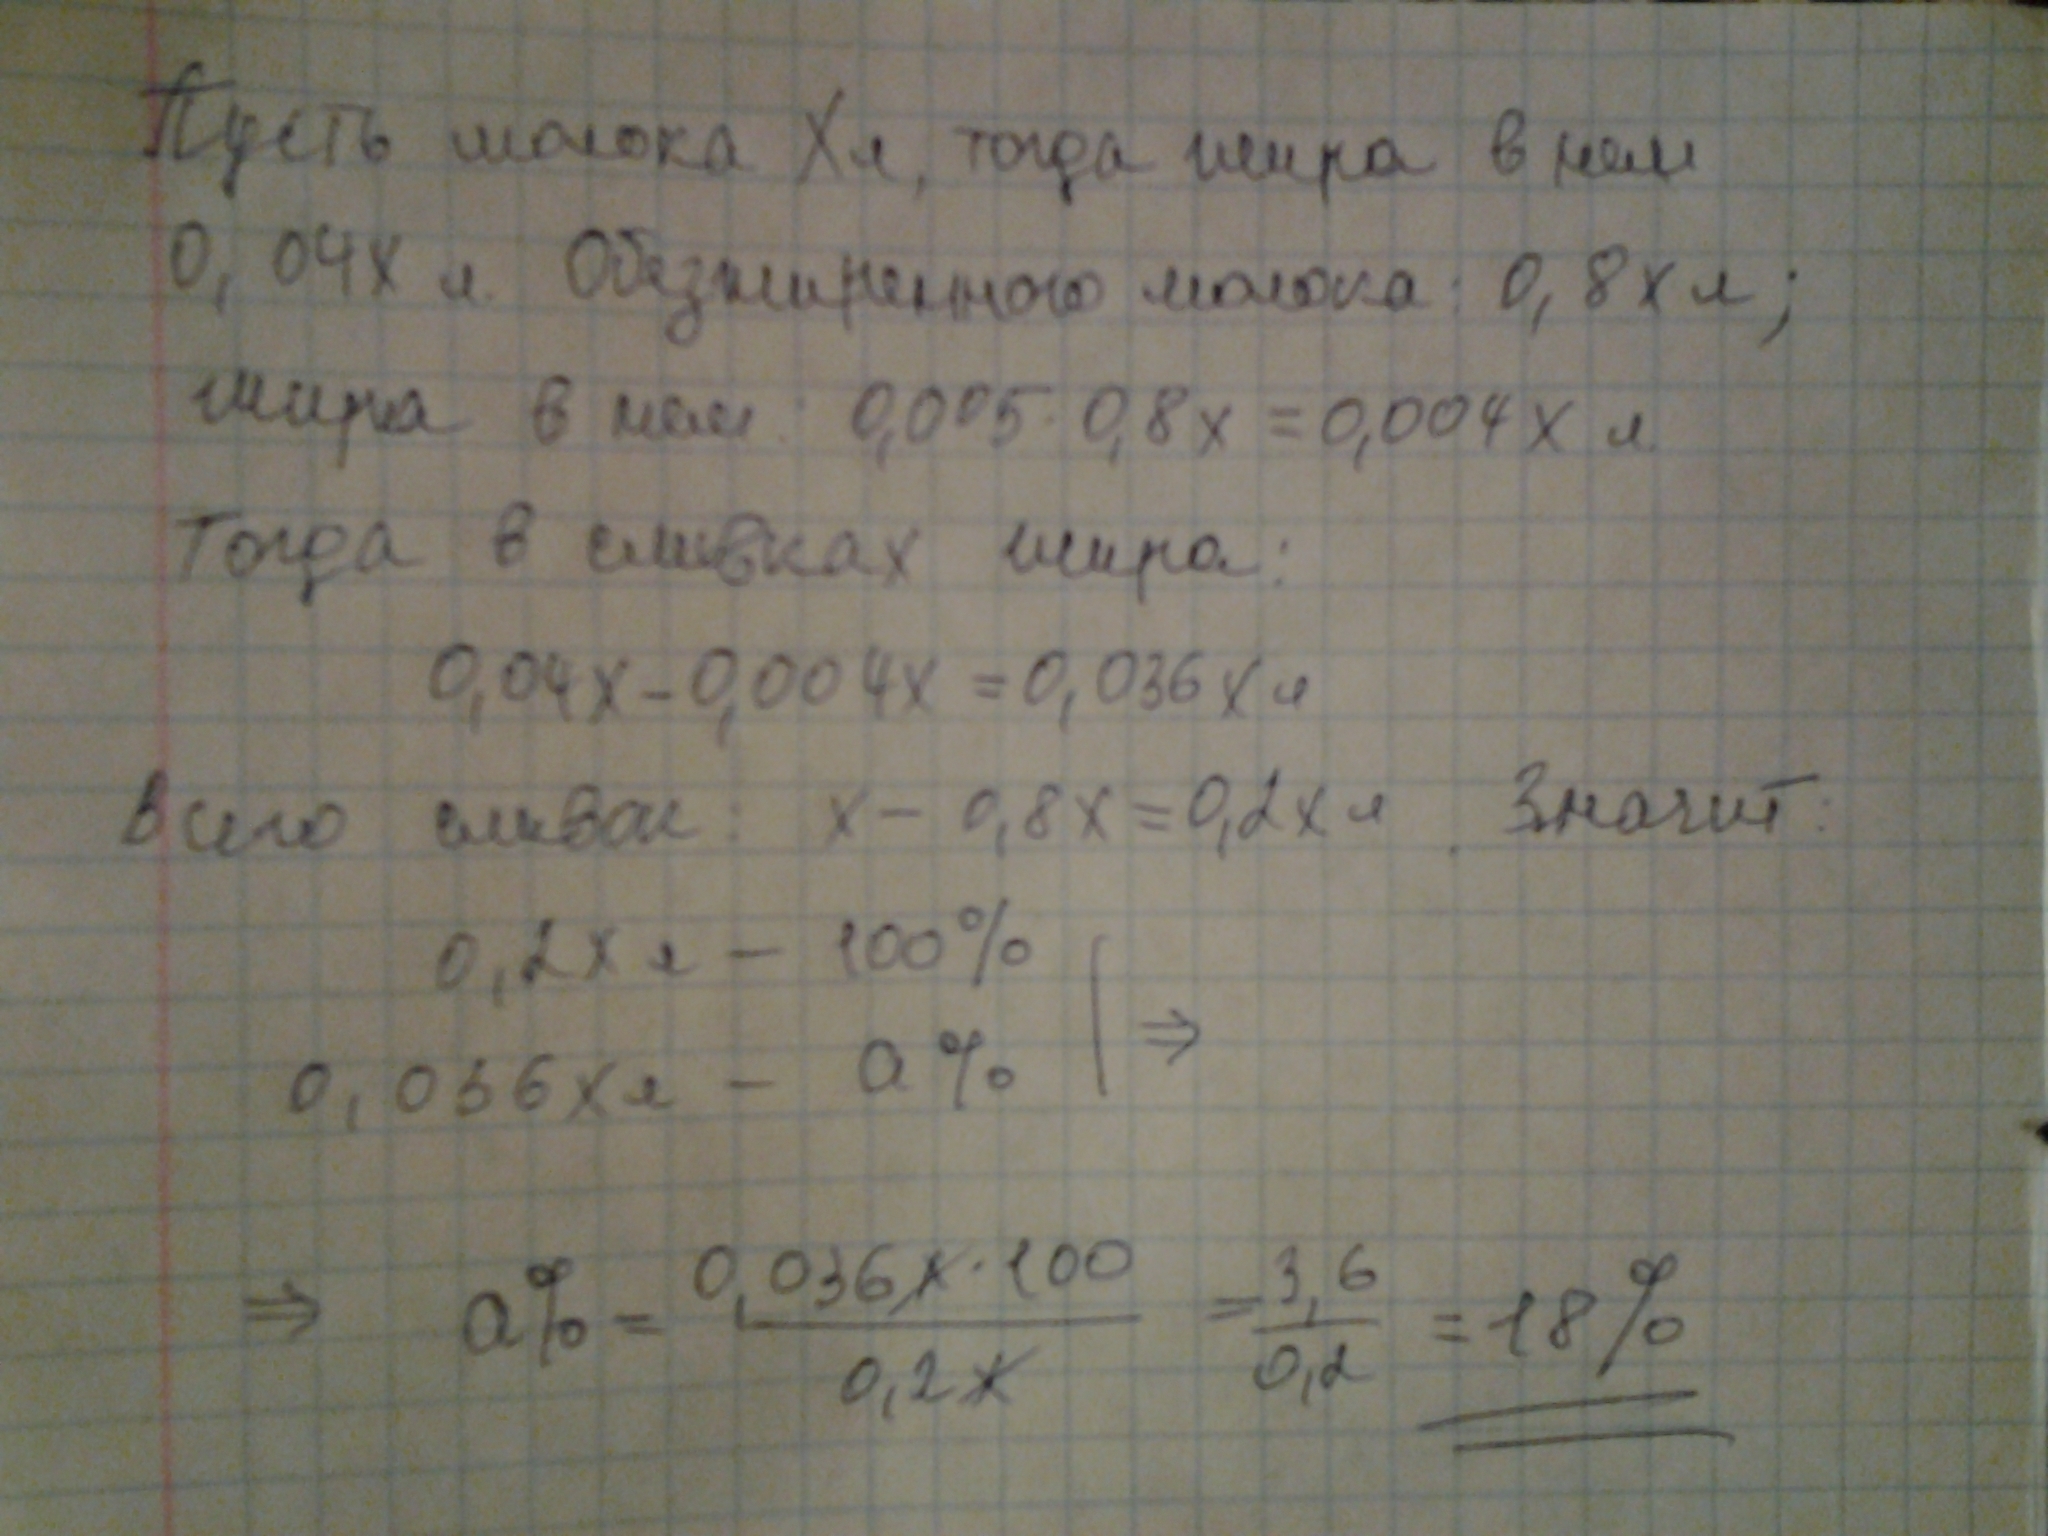 Пусть молока Xл, тогда жира в нем
0,04x л. Обезжиренного молока: 0,8x л;
жира в нем: 0,005·0,8x=0,004x л
Тогда в сливках жира:
0,04x-0,004x=0,036x л
Всего сливок: x-0,8x=0,2x л. Значит:
0,2x л - 100%
0,036x л - a% | ⇒
⇒ a% = 0,036x·100 / 0,2x = 3,6 / 0,2 = 18%